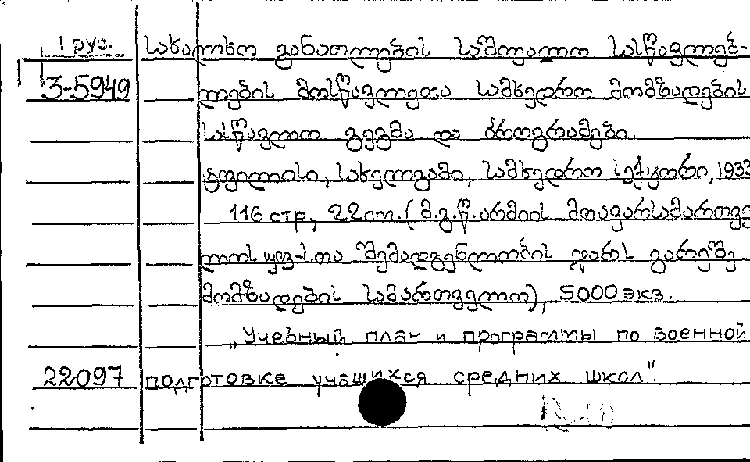 1 рус. სახალხო განათლების საშუალო სასწავლებ-
3-5949 ლების მოსწავლეთა სამხედრო მომზადების
სასწავლო გეგმა და პროგრამები.
ტფილისი, სახელგამი, სამხედრო სექტორი, 1933
116 стр., 22 см. (მ.გ.წ. არმიის მთავარსამართვე
ლოს უფ-თა შემადგენლობის ჯარს გარეშე
მომზადების სამართველო), 5000 экз.
„Учебный план и программы по военной
22097 подготовке учащихся средних школ".